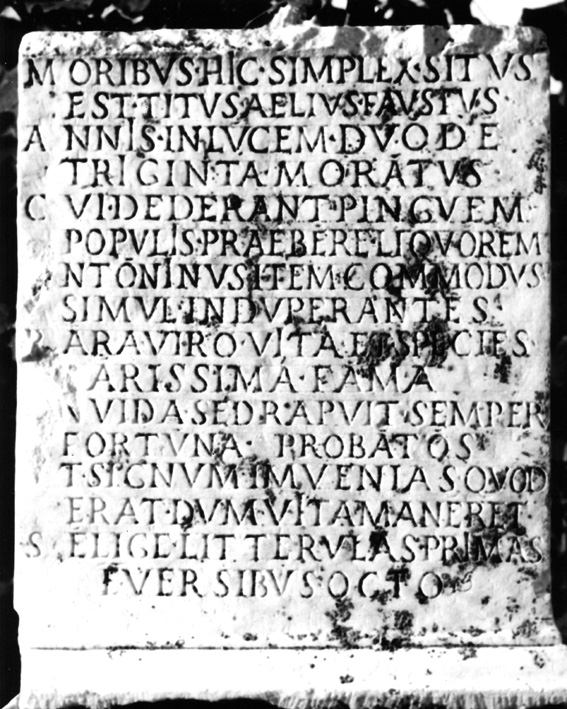 MORIBVS·HIC·SIMPLEX·SITVS
EST·TITVS·AELIVS·FAVSTVS·
ANNIS·IN·LVCEM·DVODE
TRIGINTA·MORATVS·
CVI·DEDERANT·PINGVEM
POPVLIS·PRAEBERE·LIQVOREM
NTONINVS·ITEM·COMMODVS
SIMVL·INDVPERANTES·
RARA·VIRO·VITA·ET·SPECIES
ARISSIMA·FAMA
NVIDA·SED·RAPVIT·SEMPER
FORTVNA·PROBATOS
T·SIGNVM·IMVENIAS·QVOD
ERAT·DVM·VITA·MANERET·
SELIGE·LITTERVLAS·PRIMAS
E·VERSIBVS·OCTO